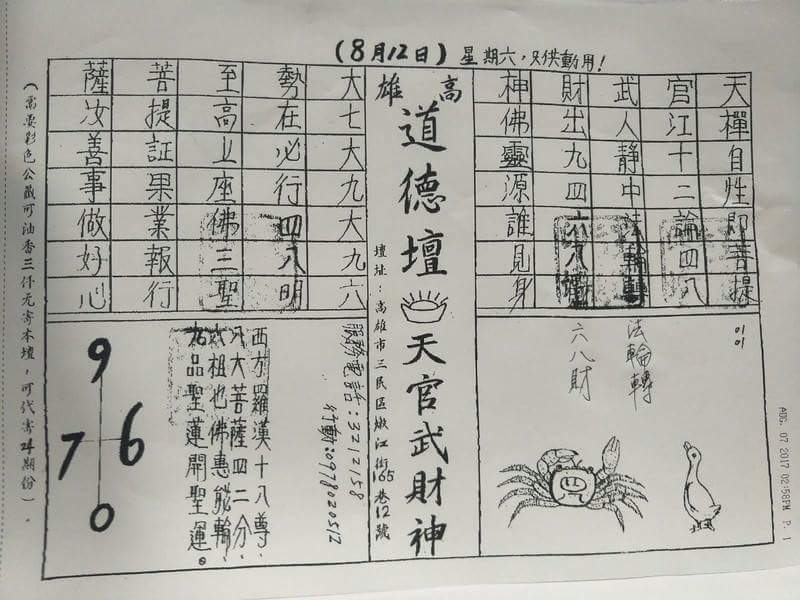 (8月12日) 星期六,只供動用!
天禪自性即菩提
官江十二論四八
武人靜中法輪轉
財出九四六八
神佛靈源誰見身
高雄
道德壇 天官武財神
壇址:高雄市三民區嫩江街165巷12號
大七大九大九六
勢在必行四八明
至高上座佛三聖
菩提証果業報行
薩汝善事做好心
法輪轉
六八財
服務電話:3212158
行動:0978020512
西方羅漢十八尊、
八大菩薩四二分、
六祖也佛惠能輪、
九品聖蓮開聖運。
9
7 6
0
(需要彩色公藏可油香三仟元寄本壇,可代寄24期份)。
AUG. 07 2017 02:58PM P. 1